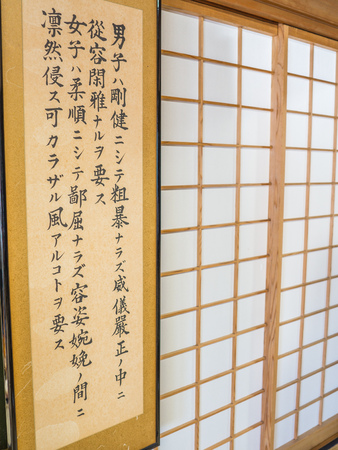 男子ハ剛健ニシテ粗暴ナラズ威儀嚴正ノ中ニ
從容閑雅ナルヲ要ス
女子ハ柔順ニシテ鄙屈ナラズ容姿婉娩ノ間ニ
凛然侵ス可カラザル風アルコトヲ要ス